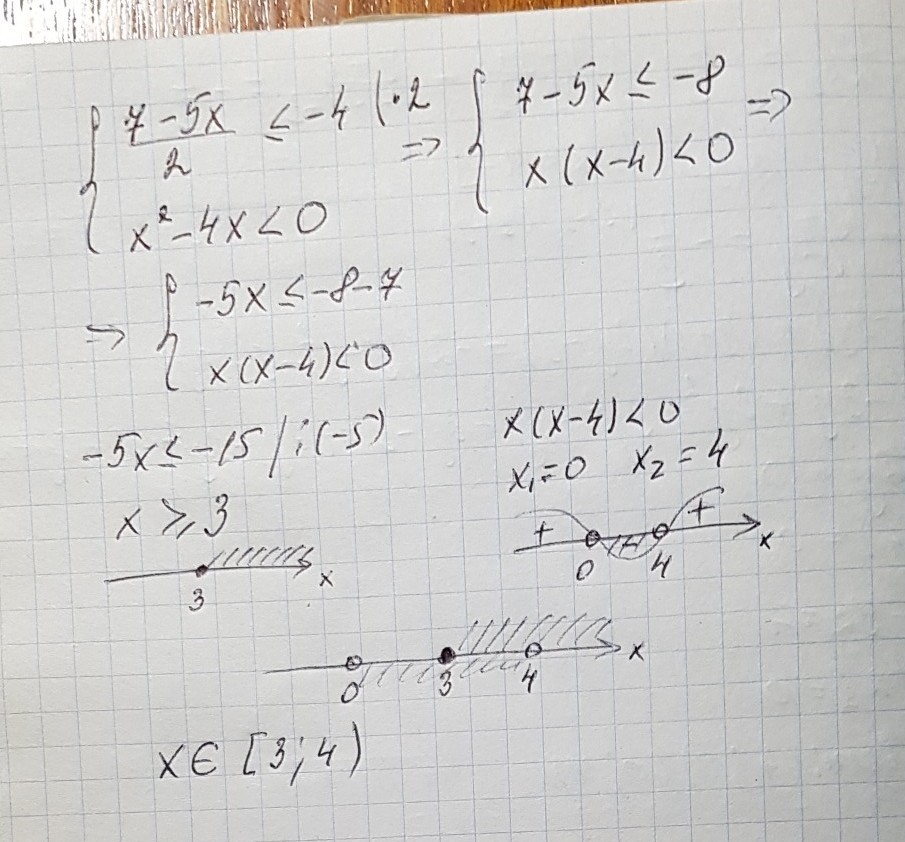 { (7-5x)/2 ≤ -4 |·2 ⇒ { 7-5x ≤ -8 ⇒
x²-4x<0 x(x-4)<0
⇒ { -5x ≤ -8-7
x(x-4)<0
-5x ≤ -15 /:(-5)
x ≥ 3
3 x
x(x-4)<0
x₁=0 x₂=4
+ - + x
0 4
0 3 4 x
x∈[3;4)